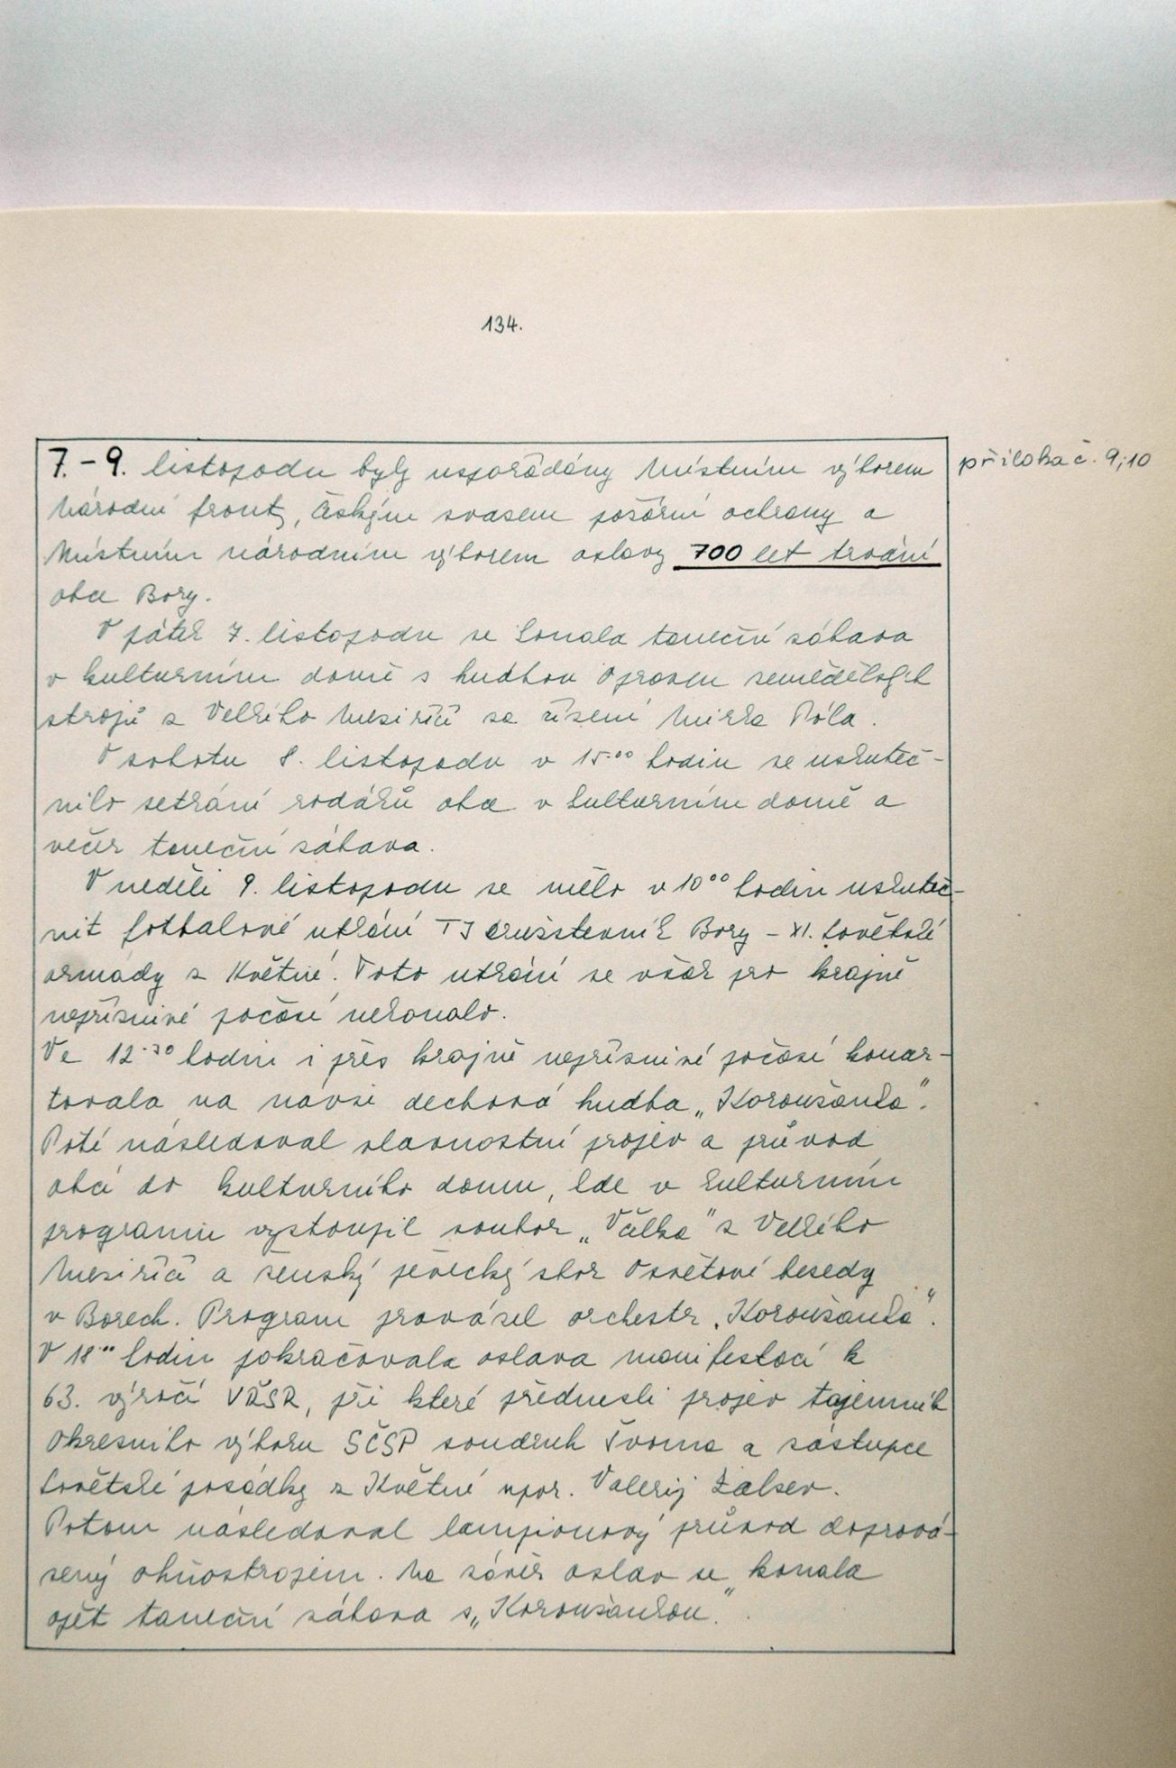 134.
7.-9. listopadu byly uspořádány Místním výborem
příloha č. 9, 10
Národní fronty, Českým svazem požární ochrany a
Místním národním výborem oslavy 700 let trvání
obce Bory.
V pátek 7. listopadu se konala taneční zábava
v kulturním domě s hudbou Opraven zemědělských
strojů z Velkého Meziříčí za řízení Mirka Póla.
V sobotu 8. listopadu v 15.00 hodin se uskuteč-
nilo setkání rodáků obce v kulturním domě a
večer taneční zábava.
V neděli 9. listopadu se mělo v 10 00 hodin uskuteč-
nit fotbalové utkání TJ Družstevník Bory - XI. Sovětské
armády z Květné. Toto utkání se však pro krajně
nepříznivé počasí nekonalo.
Ve 12.30 hodin i přes krajně nepříznivé počasí koncer-
tovala na návsi dechová hudba „Koroužanka".
Poté následoval slavnostní projev a průvod
obcí do kulturního domu, kde v kulturním
programu vystoupil soubor „Válka" z Velkého
Meziříčí a ženský pěvecký sbor Osvětové besedy
v Borech. Program provázel orchestr „Koroužanka".
V 18 00 hodin pokračovala oslava manifestací k
63. výročí VŘSR, při které přednesli projev tajemník
Okresního výboru SČSP soudruh Tvoma a zástupce
Sovětské posádky z Květné npor. Valerij Zalsev.
Potom následoval lampionový průvod doprová-
zený ohňostrojem. Na závěr oslav se konala
opět taneční zábava s „Koroužankou".